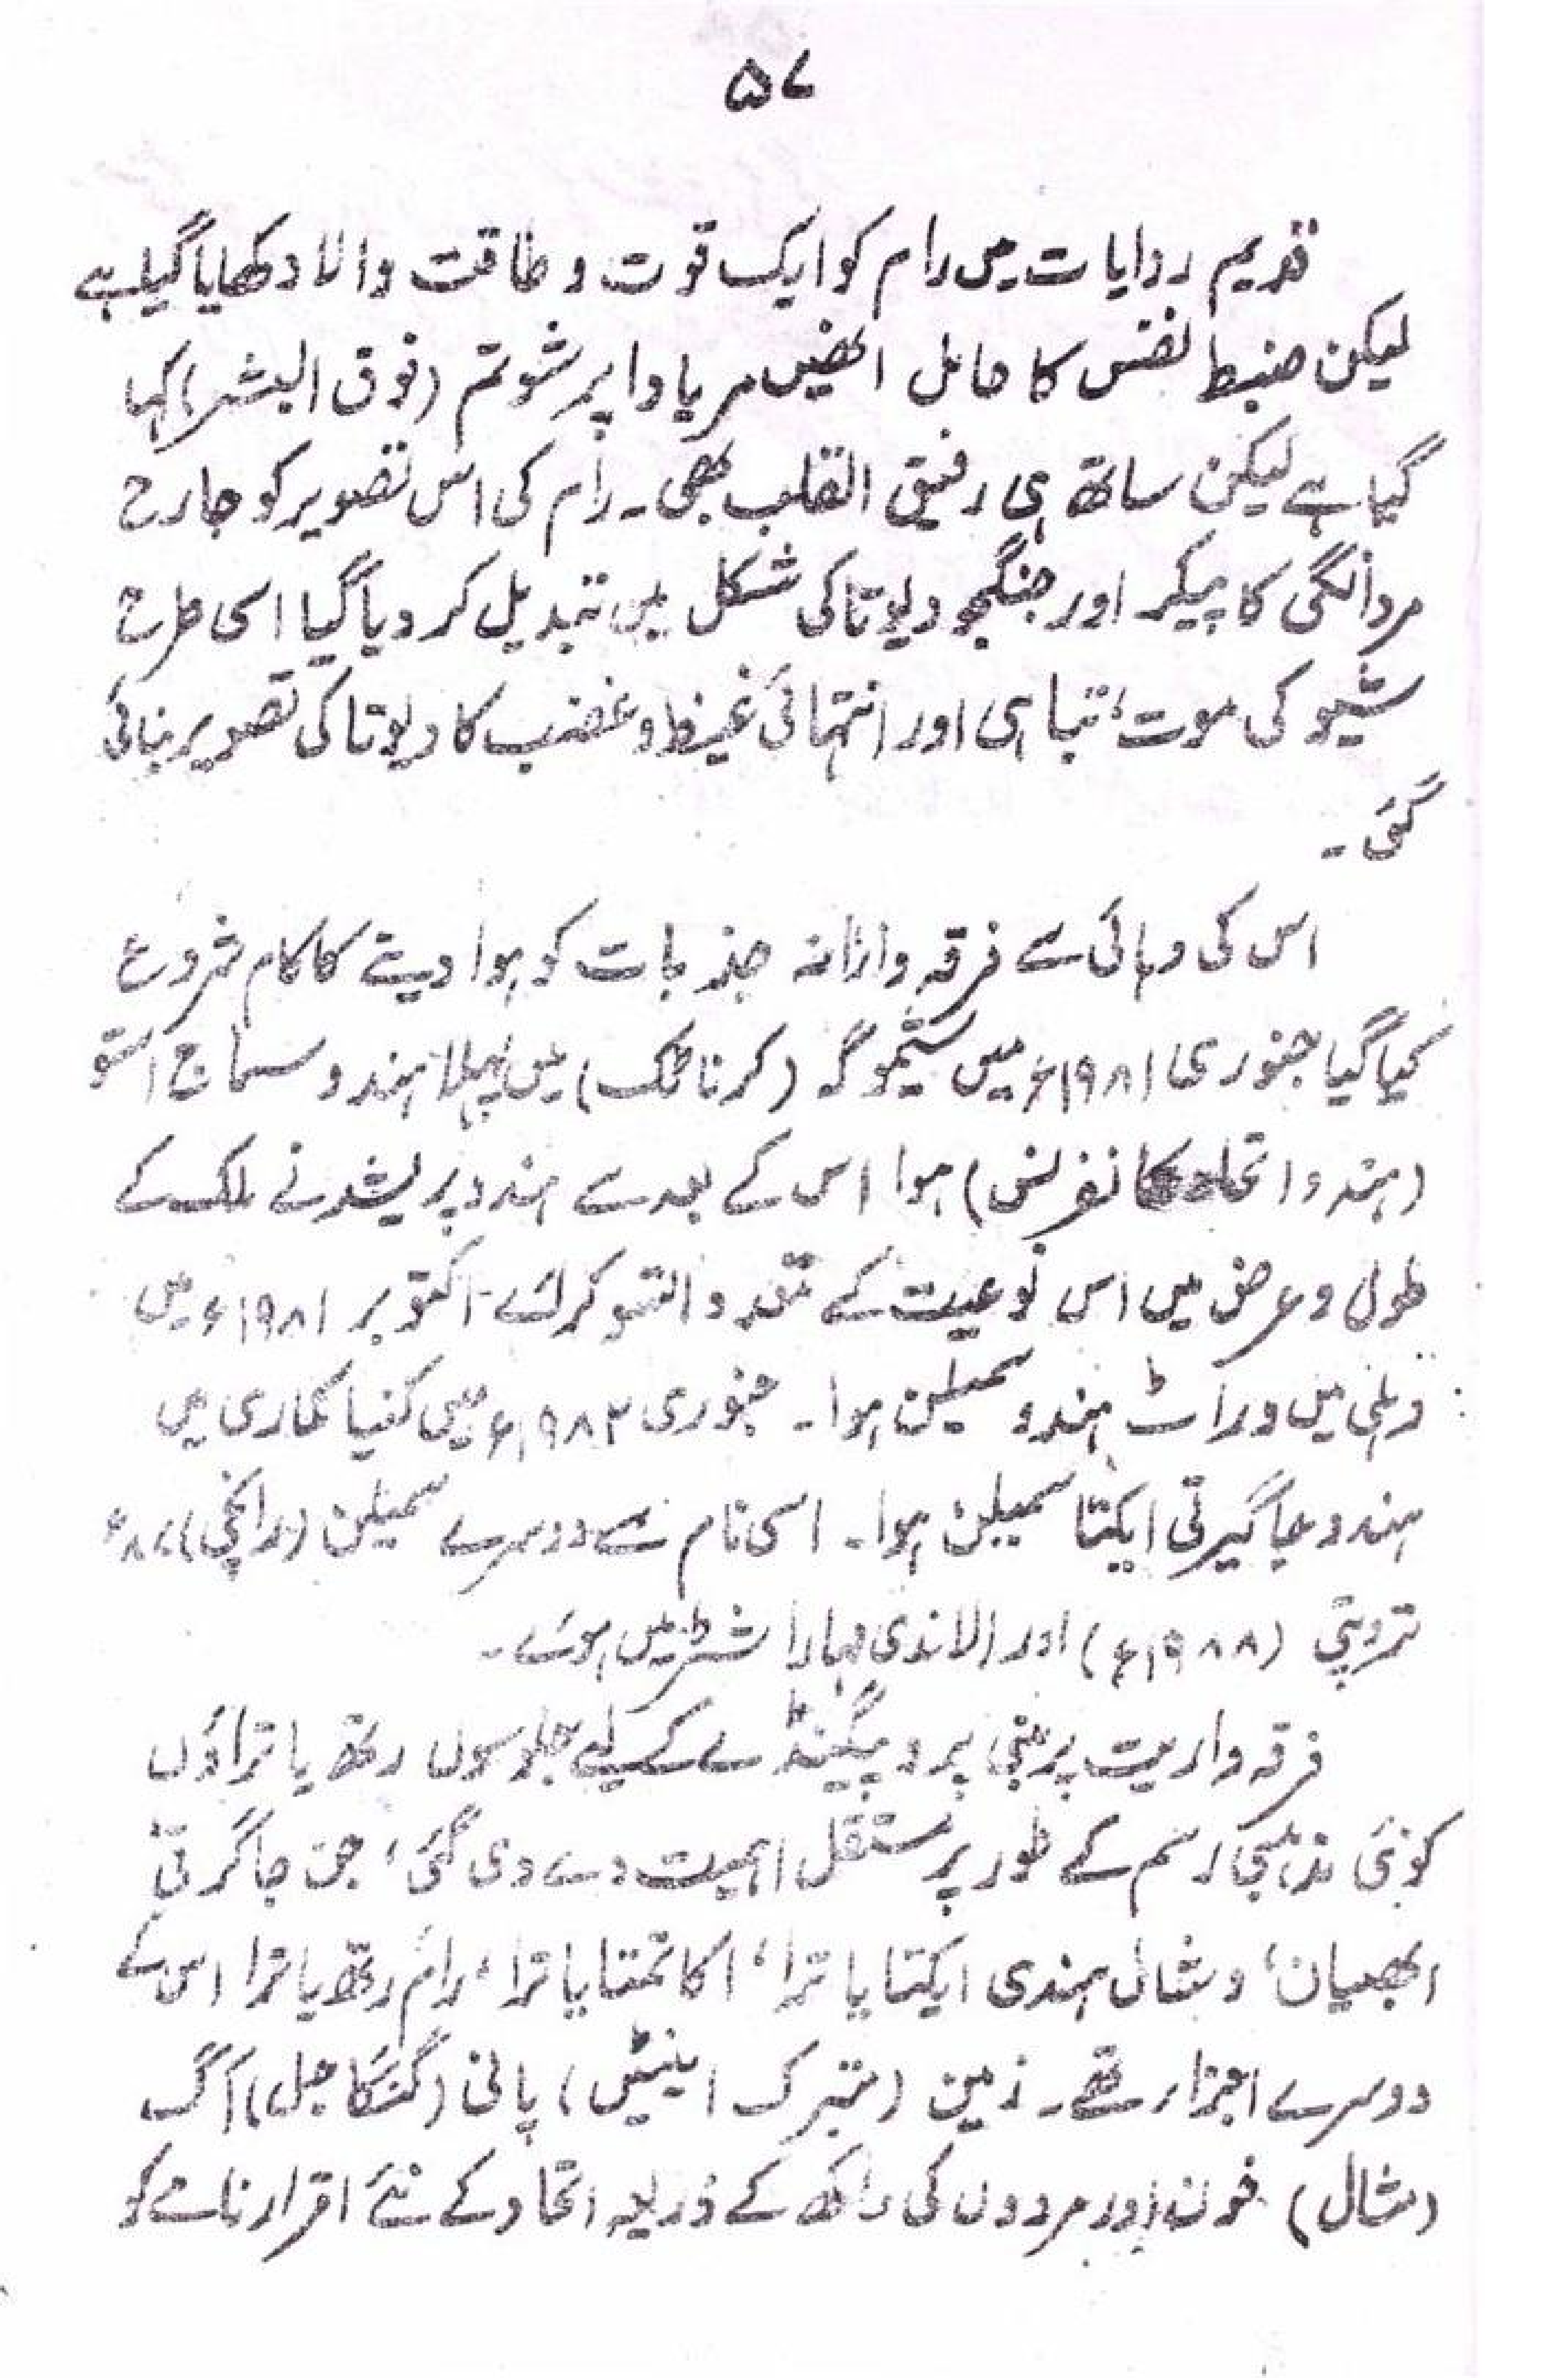 ۵۷
قدیم روایات میں رام کو ایک قوت و طاقت والا دکھایا گیا ہے
لیکن ضبط نفس کا حامل انھیں مریادا پرشوتم (فوق البشر) کہا
گیا ہے لیکن ساتھ ہی رفیق القلب بھی۔ رام کی اس تصویر کو جارح
مردانگی کا پیکر اور جنگجو دیوتا کی شکل میں تبدیل کر دیا گیا اسی طرح
شیو کی موت، تباہی اور انتہائی غیظ و غضب کا دیوتا کی تصویر بنائی
گئی۔
اس کی دہائی سے فرقہ وارانہ جذبات کو ہوا دینے کا کام شروع
کیا گیا جنوری ۱۹۸۱ء میں شیموگہ (کرناٹک) میں پہلا ہندو سماج اتسو
(ہندو اتحاد کانفرنس) ہوا اس کے بعد سے ہندو پریشد نے ملک کے
طول و عرض میں اس نوعیت کے متعدد اتسو کرائے۔ اکتوبر ۱۹۸۱ء میں
دہلی میں وراٹ ہندو سمیلن ہوا۔ جنوری ۱۹۸۳ء میں کنیا کماری میں
ہندو جاگیرتی ایکتا سمیلن ہوا۔ اسی نام سے دوسرے سمیلن (رانچی)
تروپتی (۱۹۸۸ء) اور الاندی مہاراشٹر میں ہوئے۔
فرقہ واریت پر مبنی پروپیگنڈے کے لیے جلوسوں رتھ یاتراؤں
کو نئی مذہبی رسم کے طور پر مستقل اہمیت دے دی گئی، جن جاگرتی
ابھیان، وشال ہندی ایکتا یاترا، اکاتمتا یاترا، رام رتھ یاترا اس کے
دوسرے اجزار تھے۔ زمین (متبرک اینٹیں) پانی (گنگا جل) آگ
(مشال) خون اور مردوں کی راکھ کے ذریعہ اتحاد کے نئے اقرار نامے کو